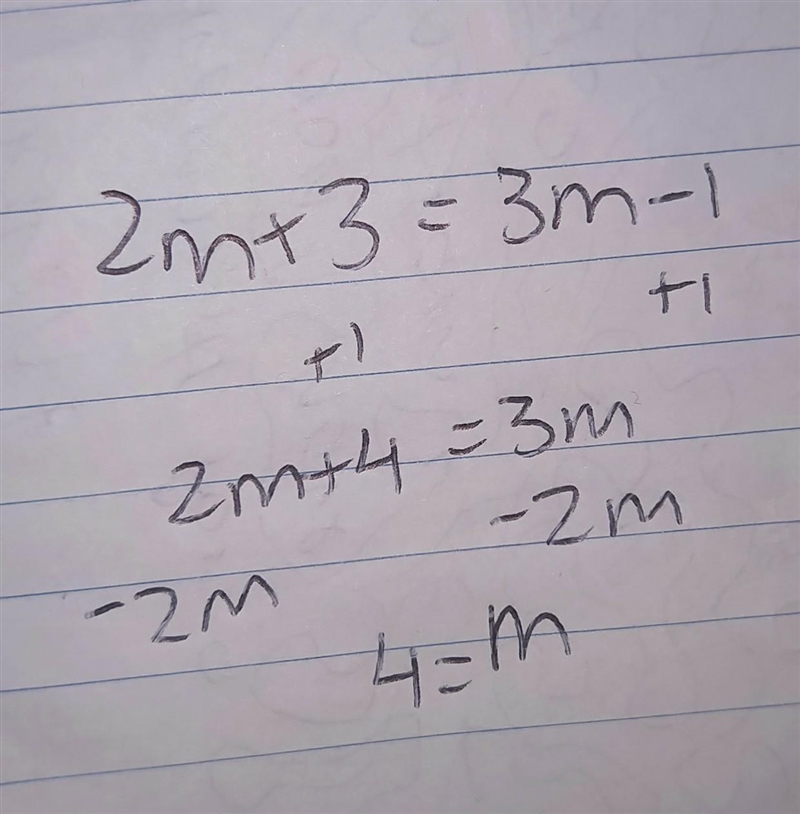 2m+3=3m-1
+1 +1
2m+4=3m
-2m -2m
4=m